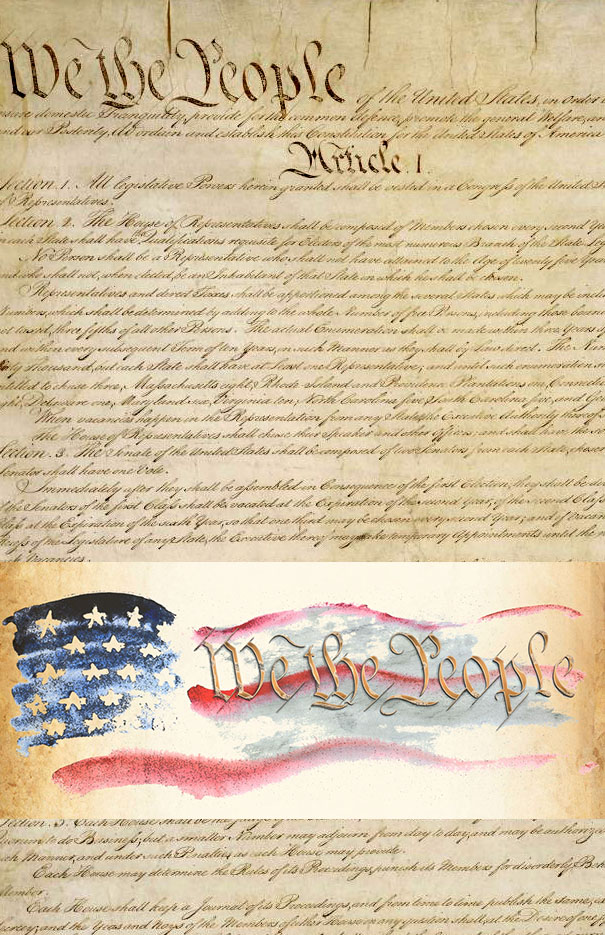 We the People of the United States, in Order
insure domestic Tranquility, provide for the common defence, promote the general Welfare, an
and our Posterity, do ordain and establish this Constitution for the United States of America
Article. I.
Section. 1. All legislative Powers herein granted shall be vested in a Congress of the United St
of Representatives.
Section. 2. The House of Representatives shall be composed of Members chosen every second Year
in each State shall have the Qualifications requisite for Electors of the most numerous Branch of the State Leg
No Person shall be a Representative who shall not have attained to the Age of twenty five Years
and who shall not, when elected, be an Inhabitant of that State in which he shall be chosen.
Representatives and direct Taxes shall be apportioned among the several States which may be inclu
Numbers, which shall be determined by adding to the whole Number of free Persons, including those bound
not taxed, three fifths of all other Persons. The actual Enumeration shall be made within three Years af
and within every subsequent Term of ten Years, in such Manner as they shall by Law direct. The Num
thirty Thousand, but each State shall have at Least one Representative; and until such enumeration sh
entitled to chuse three, Massachusetts eight, Rhode Island and Providence Plantations one, Connectic
eight, Delaware one, Maryland six, Virginia ten, North Carolina five, South Carolina five, and Geo
When vacancies happen in the Representation from any State, the Executive Authority thereof s
The House of Representatives shall chuse their Speaker and other Officers; and shall have the so
Section. 3. The Senate of the United States shall be composed of two Senators from each State, chosen
Senator shall have one Vote.
Immediately after they shall be assembled in Consequence of the first Election, they shall be div
of the Senators of the first Class shall be vacated at the Expiration of the second Year, of the second Class
Class at the Expiration of the sixth Year, so that one third may be chosen every second Year; and if Vacan
Recess of the Legislature of any State, the Executive thereof may make temporary Appointments until the n
Vacancies.
We the People
Section. 5. Each House shall be the Judge of
Quorum to do Business; but a smaller Number may adjourn from day to day, and may be authoriz
such Manner, and under such Penalties as each House may provide.
Each House may determine the Rules of its Proceedings, punish its Members for disorderly Beh
Member.
Each House shall keep a Journal of its Proceedings, and from time to time publish the same, e
Secrecy; and the Yeas and Nays of the Members of either House on any question shall, at the Desire of one f